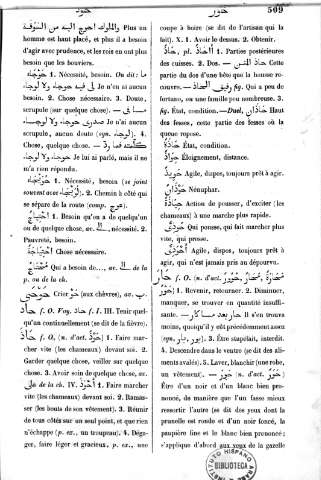 حود
حور
509
والملوك احوج اليه من السوقة Plus un
homme est haut placé, et plus il a besoin
d'agir avec prudence, et les rois en ont plus
besoin que les bourriers.
حَوْجَآءُ 1. Nécessité, besoin. On dit : ما
لى فيه حوجاء ولا لوجاء Je n'ai aucun
besoin. 2. Chose nécessaire. 3. Doute,
scrupule (sur quelque chose). — ما فى
صدرى حوجاء ولا لوجاء Je n'ai aucun
scrupule, aucun doute (syn. لوجاء). 4.
Chose, quelque chose. — كلمته فما رد
حوجاء ولا لوجاء Je lui ai parlé, mais il se
m'a rien répondu.
1. Nécessité, besoin (se joint
souvent avec). 2. Chemin à côté qui
se sépare de la route (comp. عوج).
اِحْتِيَاجٌ 1. Besoin qu'on a de quelqu'un
ou de quelque chose, ac. الى. nécessité. 2.
Pauvreté, besoin.
Chose nécessaire.
مُحْتَاجٌ Qui a besoin de..., ac. الى de la
p. ou de la ch.
Crier (aux chèvres), ac. ب.
حاذ f. O. Voy. حاذ f. I. III. Tenir quel-
qu'un continuellement (se dit de la fièvre).
حاذ f. O. (n. d'act. حَوْذٌ) 1. Faire mar-
cher vite (les chameaux) devant soi. 2.
Garder quelque chose, veiller sur quelque
chose. 3. Avoir soin de quelque chose, ac.
على de la ch. IV. أحْوَذَ 1. Faire marcher
vite (les chameaux) devant soi. 2. Ramas-
ser (les bouts de son vêtement). 3. Réunir
de tous côtés sur un seul point, et que rien
n'échappe (p. ex., un troupeau). 4. Déga-
ger, faire léger et gracieux, p. ex., une
coupe à boire (se dit de l'artisan qui la
fait). X. 1. Avoir le dessus. 2. Obtenir.
حَاذٌ, pl. 1. Parties postérieures
des cuisses. 2. Dos. — حاذ المتن Cette
partie du dos d'une bête que la housse re-
couvre. — خفيف الحاذ fig. Qui a peu de
fortune, ou une famille peu nombreuse. 3.
fig. État, condition. — Duel, حاذان Haut
des fesses, cette partie des fesses où la
queue repose.
حَاذَةٌ État, condition.
Éloignement, distance.
Agile, dispos, toujours prêt à agir.
Nénuphar.
Action de pousser, d'exciter (les
chameaux) à une marche plus rapide.
Qui pousse, qui fait marcher plus
vite, qui presse.
أحْوَذِىٌّ Agile, dispos, toujours prêt à
agir, qui n'est jamais pris au dépourvu.
حار f. O. (n. d'act.
حَوْرٌ) 1. Revenir, retourner. 2. Diminuer,
manquer, se trouver en quantité insuffi-
sante. — حار بعد ما كار Il s'en trouve
moins, quoiqu'il y eût précédemment assez
(syn.). 3. Être stupéfait, interdit.
4. Descendre dans le ventre (se dit des ali-
ments avalés). 5. Laver, blanchir (une robe,
un vêtement). — حَوِرَ (n. d'act. حَوَرٌ)
Être d'un noir et d'un blanc bien pronon-
cé, de manière que l'un fasse mieux
ressortir l'autre (se dit des yeux dont la
prunelle est ronde et d'un noir foncé, la
paupière fine et le blanc bien prononcé;
s'applique d'abord aux yeux de la gazelle
INSTITUTO HISPANO
BIBLIOTECA